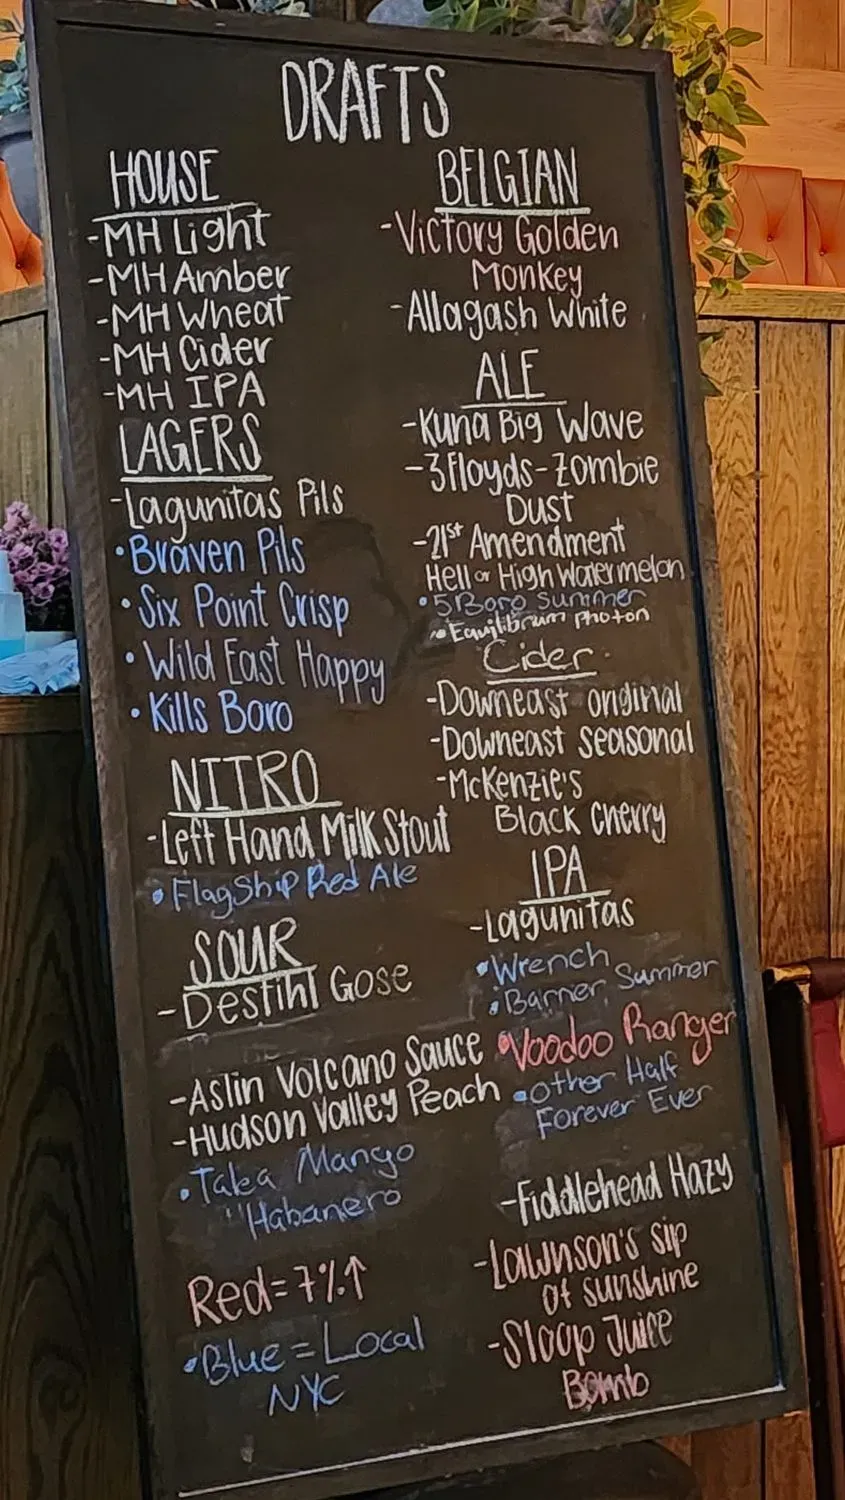 DRAFTS
HOUSE
-MH Light
-MH Amber
-MH Wheat
-MH Cider
-MH IPA
LAGERS
-Lagunitas Pils
•Braven Pils
•Six Point Crisp
•Wild East Happy
•Kills Boro
NITRO
-Left Hand Milk Stout
•Flagship Red Ale
SOUR
-Destihl Gose
-Aslin Volcano Sauce
-Hudson Valley Peach
•Talea Mango
"Habanero
Red=7%↑
•Blue = Local
NYC
BELGIAN
-Victory Golden
Monkey
-Allagash White
ALE
-Kuna Big Wave
-3Floyds-Zombie
Dust
-21st Amendment
Hell or High Watermelon
•5Boro Summer
•Equilibrium photon
Cider
-Downeast original
-Downeast seasonal
-McKenzie's
Black Cherry
IPA
-Lagunitas
•Wrench
•Barrier Summer
•Voodoo Ranger
•Other Half
Forever Ever
-Fiddlehead Hazy
-Lawnson's sip
of sunshine
-Sloop Juice
Bomb